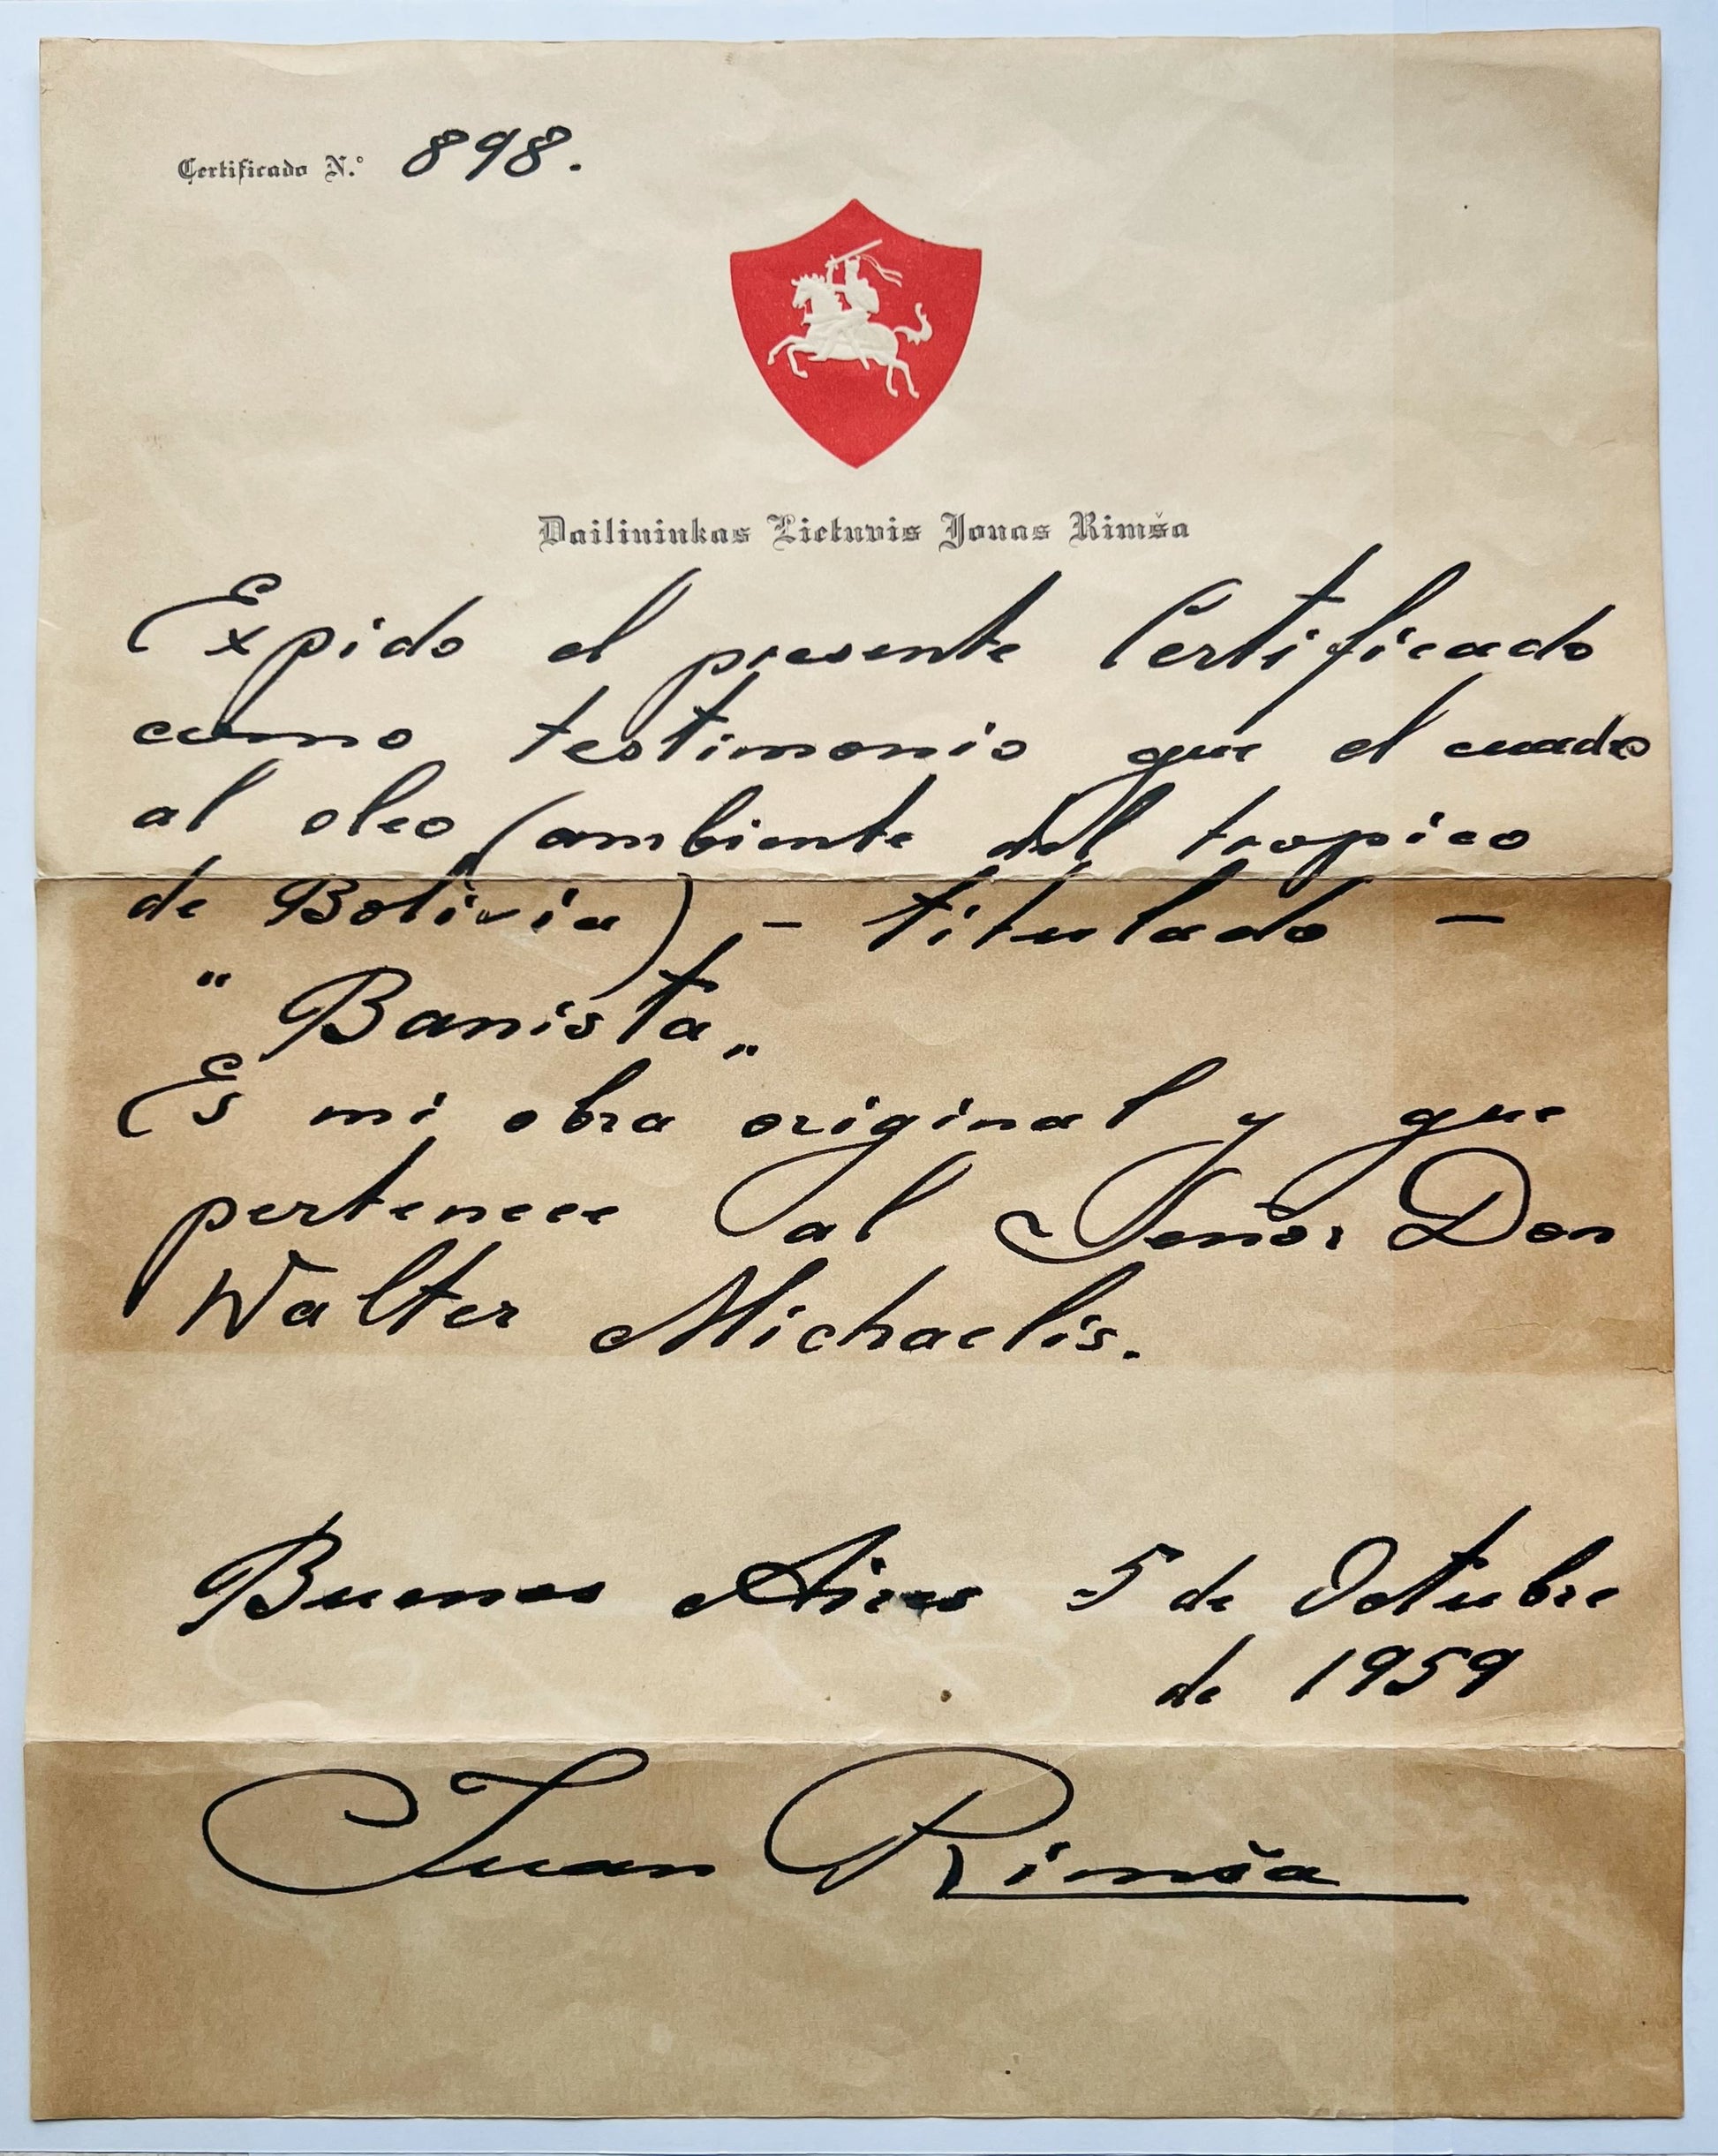 Certificado N.º 898.
Dailininkas Lietuvis Jonas Rimša
Expido el presente Certificado
como testimonio que el cuadro
al oleo (ambiente del tropico
de Bolivia) – titulado –
"Banista„
Es mi obra original y que
pertenece al Señor Don
Walter Michaelis.
Buenos Aires 5 de Octubre
de 1959
Juan Rimša